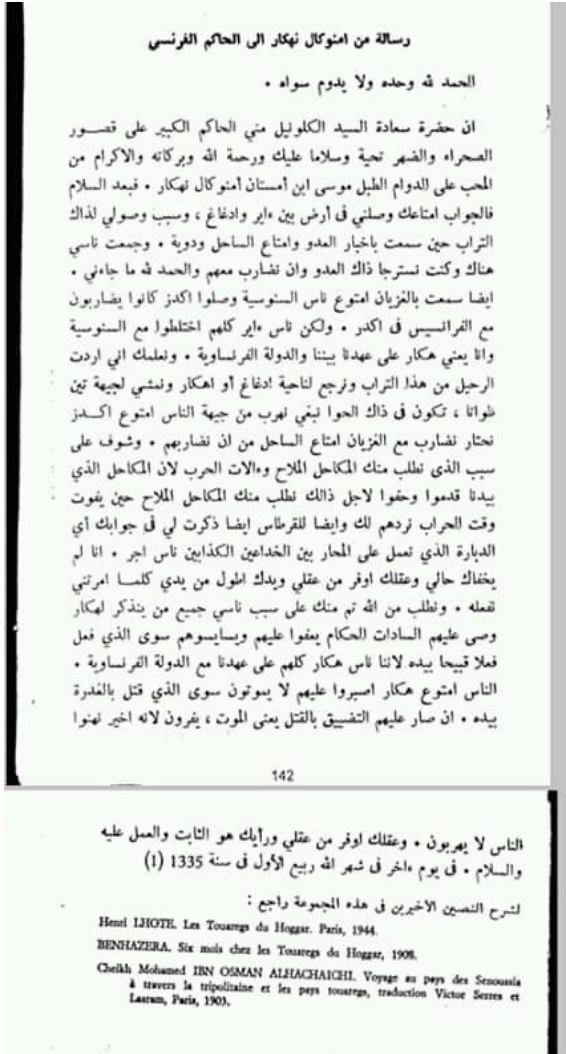 رسالة من امنوكال نهكار الى الحاكم الفرنسي
الحمد لله وحده ولا يدوم سواه •
ان حضرة سعادة السيد الكلونيل مني الحاكم الكبير على قصور
الصحراء والضهر تحية وسلاما عليك ورحمة الله وبركاته والاكرام من
المحب على الدوام الطبل موسى ابن أمستان أمنوكال نهكار • فبعد السلام
فالجواب امتاعك وصلني فى أرض بين ءاير وادغاغ ، وسبب وصولي لذاك
التراب حين سمعت باخبار العدو وامتاع الساحل ودوية • وجمعت ناسي
هناك وكنت نسترجا ذاك العدو وان نضارب معهم والحمد لله ما جاءني •
ايضا سمعت بالغزيان امتوع ناس السنوسية وصلوا اكدز كانوا يضاربون
مع الفرانسيس فى اكدر • ولكن ناس ءاير كلهم اختلطوا مع السنوسية
وانا يعني هكار على عهدنا بيننا والدولة الفرنساوية • ونعلمك اني اردت
الرحيل من هذا التراب ونرجع لناحية ادغاغ أو اهكار ونمشي لجيهة تين
ظواتا ، تكون فى ذاك الحوا نبغي نهرب من جيهة الناس امتوع اكدز
نحتار نضارب مع الغزيان امتاع الساحل من ان نضاربهم • وشوف على
سبب الذى نطلب منك المكاحل الملاح وءالات الحرب لان المكاحل الذي
بيدنا قدموا وحفوا لاجل ذالك نطلب منك المكاحل الملاح حين يفوت
وقت الحراب نردهم لك وايضا للقرطاس ايضا ذكرت لي فى جوابك أي
الدبارة الذي نعمل على المحار بين الخداعين الكذابين ناس اجر • انا لم
يخفاك حالي وعقلك اوفر من عقلي ويدك اطول من يدي كلما امرتني
نفعله • ونطلب من الله تم منك على سبب ناسي جميع من يتذكر لهكار
وصى عليهم السادات الحكام يعفوا عليهم ويسايسوهم سوى الذي فعل
فعلا قبيحا بيده لاننا ناس هكار كلهم على عهدنا مع الدولة الفرنساوية •
الناس امتوع هكار اصبروا عليهم لا يموتون سوى الذي قتل بالغدرة
بيده • ان صار عليهم التضييق بالقتل يعنى الموت ، يفرون لانه اخير نهنوا
142
الناس لا يهربون • وعقلك اوفر من عقلي ورأيك هو الثابت والعمل عليه
والسلام • فى يوم ءاخر فى شهر الله ربيع الأول فى سنة 1335 (1)
لشرح النصين الاخيرين فى هذه المجموعة راجع :
Henri LHOTE. Les Touaregs du Hoggar. Paris, 1944.
BENHAZERA. Six mois chez les Touaregs du Hoggar, 1908.
Cheikh Mohamed IBN OSMAN ALHACHAICHI. Voyage au pays des Senoussia
à travers la tripolitaine et les pays touaregs, traduction Victor Serres et
Lasram, Paris, 1903.